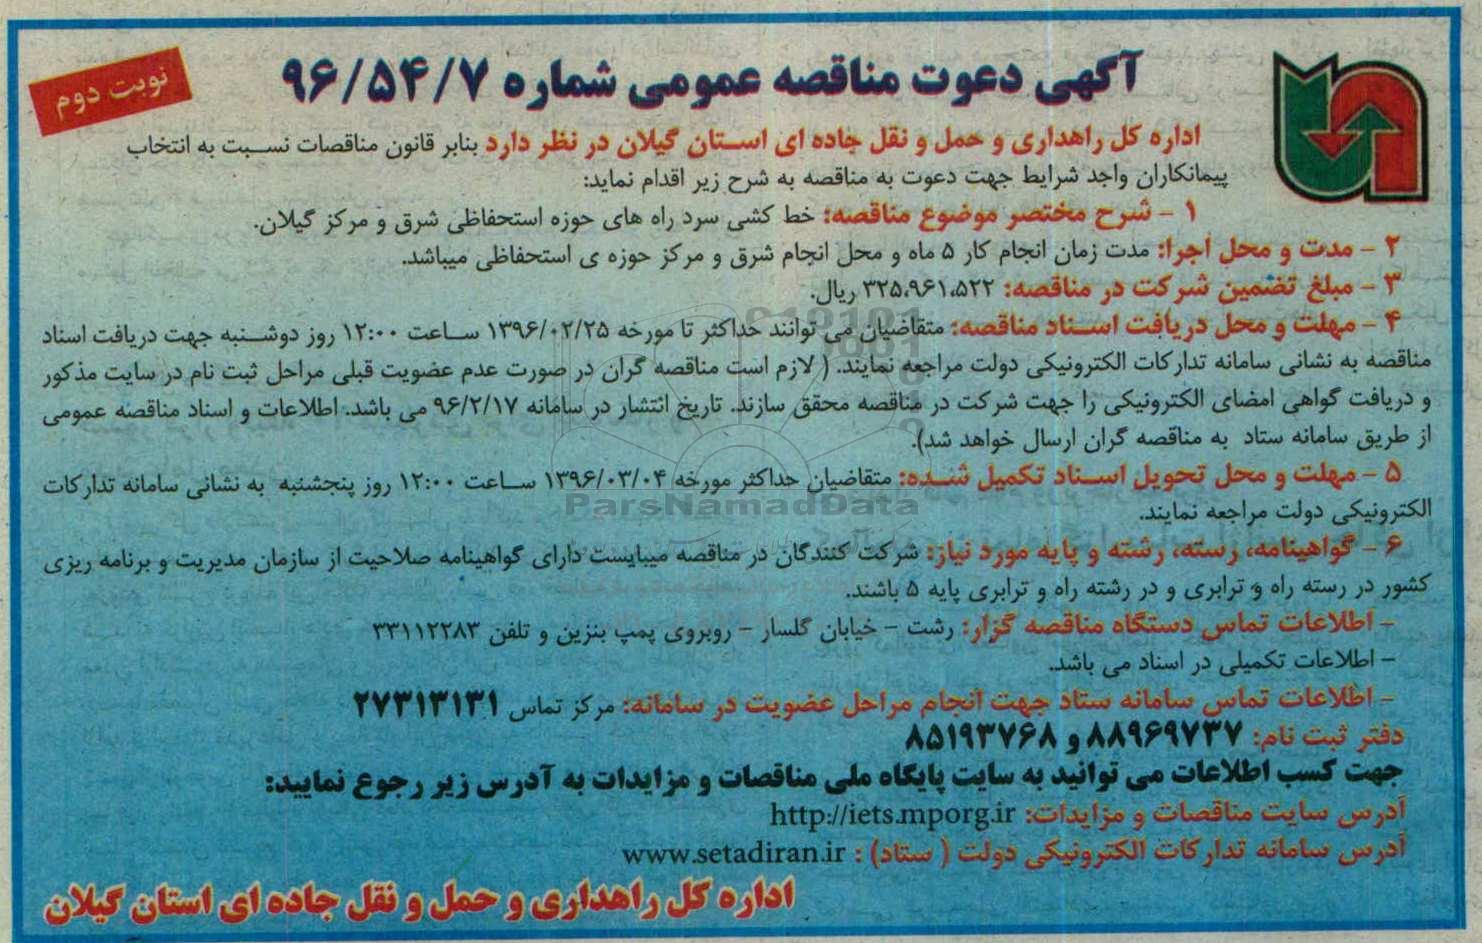 آگهی دعوت مناقصه عمومی شماره ۹۶/۵۴/۷
نوبت دوم
اداره کل راهداری و حمل و نقل جاده ای استان گیلان در نظر دارد بنابر قانون مناقصات نسبت به انتخاب
پیمانکاران واجد شرایط جهت دعوت به مناقصه به شرح زیر اقدام نماید:
۱ - شرح مختصر موضوع مناقصه: خط کشی سرد راه های حوزه استحفاظی شرق و مرکز گیلان.
۲ - مدت و محل اجرا: مدت زمان انجام کار ۵ ماه و محل انجام شرق و مرکز حوزه ی استحفاظی میباشد.
۳ - مبلغ تضمین شرکت در مناقصه: ۳۲۵،۹۶۱،۵۲۲ ریال.
۴ - مهلت و محل دریافت اسناد مناقصه: متقاضیان می توانند حداکثر تا مورخه ۱۳۹۶/۰۲/۲۵ ساعت ۱۲:۰۰ روز دوشنبه جهت دریافت اسناد
مناقصه به نشانی سامانه تدارکات الکترونیکی دولت مراجعه نمایند. ( لازم است مناقصه گران در صورت عدم عضویت قبلی مراحل ثبت نام در سایت مذکور
و دریافت گواهی امضای الکترونیکی را جهت شرکت در مناقصه محقق سازند. تاریخ انتشار در سامانه ۹۶/۲/۱۷ می باشد. اطلاعات و اسناد مناقصه عمومی
از طریق سامانه ستاد به مناقصه گران ارسال خواهد شد).
۵ - مهلت و محل تحویل اسناد تکمیل شده: متقاضیان حداکثر مورخه ۱۳۹۶/۰۳/۰۴ ساعت ۱۲:۰۰ روز پنجشنبه به نشانی سامانه تدارکات
الکترونیکی دولت مراجعه نمایند.
ParsNamadData
۶ - گواهینامه، رسته، رشته و پایه مورد نیاز: شرکت کنندگان در مناقصه میبایست دارای گواهینامه صلاحیت از سازمان مدیریت و برنامه ریزی
کشور در رسته راه و ترابری و در رشته راه و ترابری پایه ۵ باشند.
- اطلاعات تماس دستگاه مناقصه گزار: رشت - خیابان گلسار - روبروی پمپ بنزین و تلفن ۳۳۱۱۲۲۸۳
- اطلاعات تکمیلی در اسناد می باشد.
- اطلاعات تماس سامانه ستاد جهت انجام مراحل عضویت در سامانه: مرکز تماس ۲۷۳۱۳۱۳۱
دفتر ثبت نام: ۸۸۹۶۹۷۳۷ و ۸۵۱۹۳۷۶۸
جهت کسب اطلاعات می توانید به سایت پایگاه ملی مناقصات و مزایدات به آدرس زیر رجوع نمایید:
آدرس سایت مناقصات و مزایدات: http://iets.mporg.ir
آدرس سامانه تدارکات الکترونیکی دولت ( ستاد) : www.setadiran.ir
اداره کل راهداری و حمل و نقل جاده ای استان گیلان